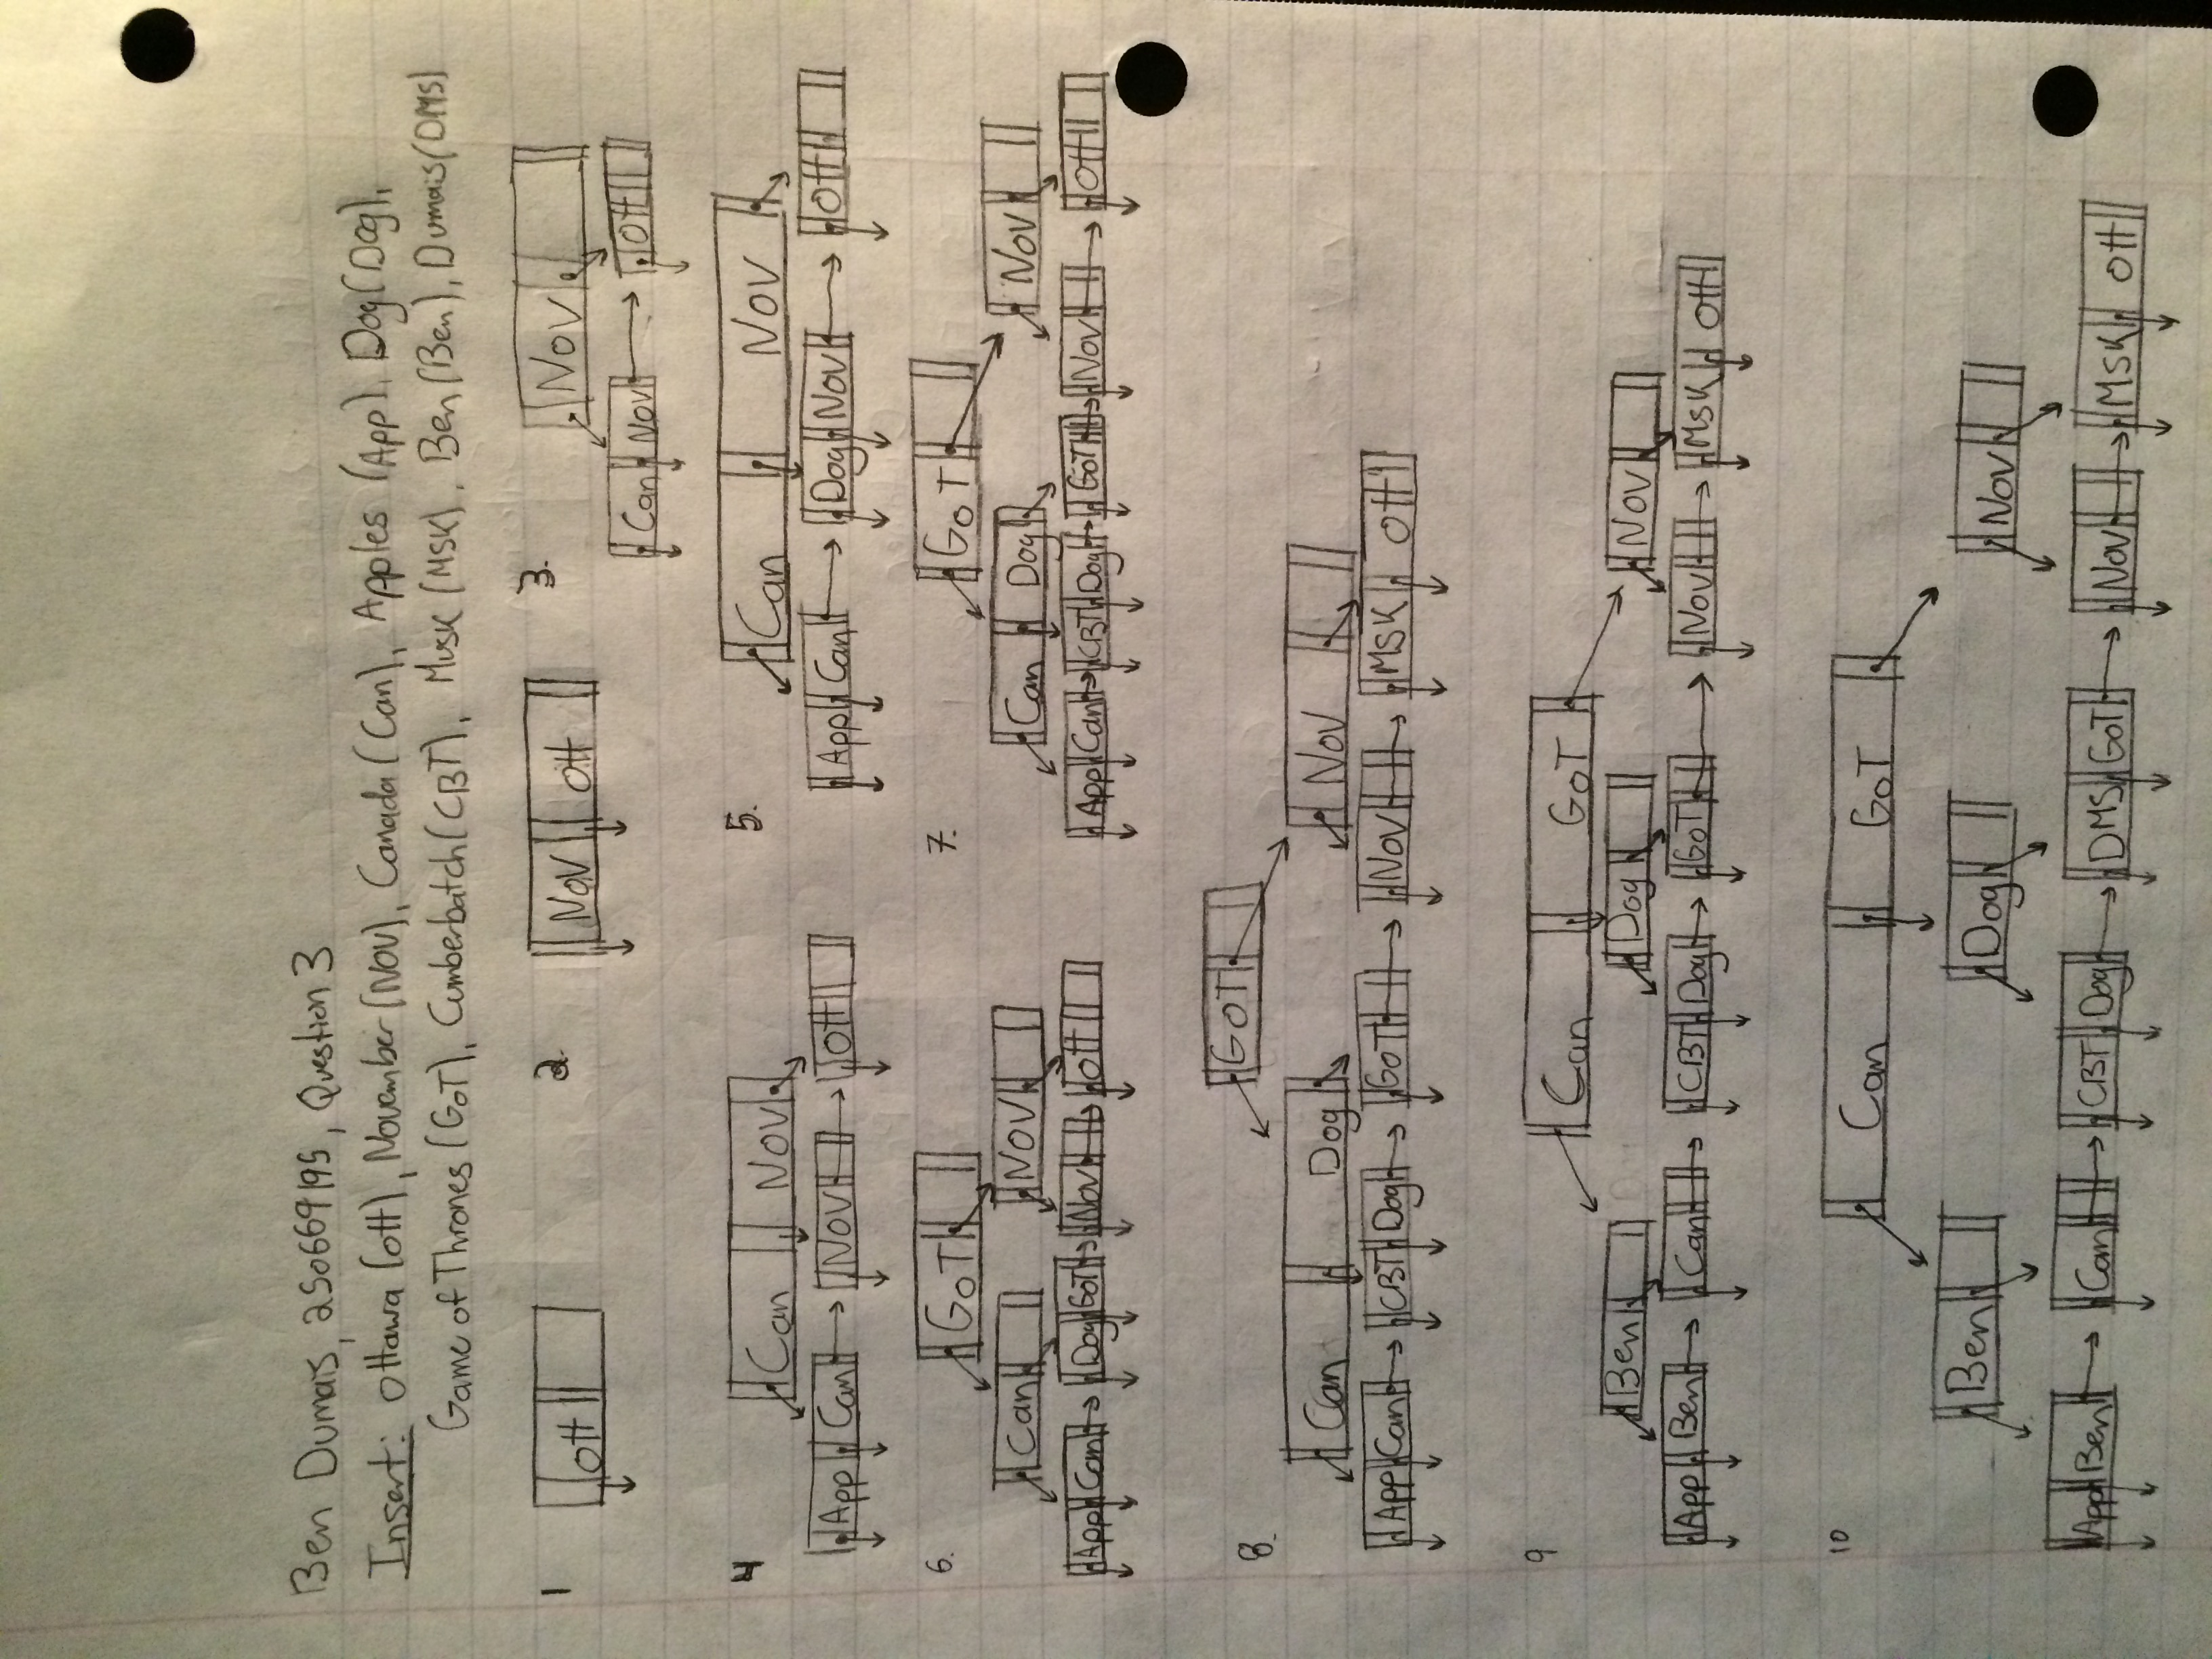 Ben Dumais, 250669195, Question 3
Insert: Ottawa (ott), November (NOV), Canada (Can), Apples (App), Dog (Dog),
Game of Thrones (GoT), Cumberbatch (CBT), Musk (MSK), Ben (Ben), Dumais (DMS)
1 ott 2. NOV ott 3. NOV
Can NOV Ott
4 Can NOV 5. Can NOV
App Can NOV Ott App Can Dog NOV Ott
6. GoT 7. GoT
Can NOV Can Dog NOV
App Can Dog GoT NOV Ott App Can CBT Dog GoT NOV Ott
8. GoT
Can Dog NOV
App Can CBT Dog GoT NOV MSK Ott
9 Can GoT
Ben Dog NOV
App Ben Can CBT Dog GoT NOV MSK Ott
10 Can GoT
Ben Dog NOV
App Ben Can CBT Dog DMS GoT NOV MSK Ott